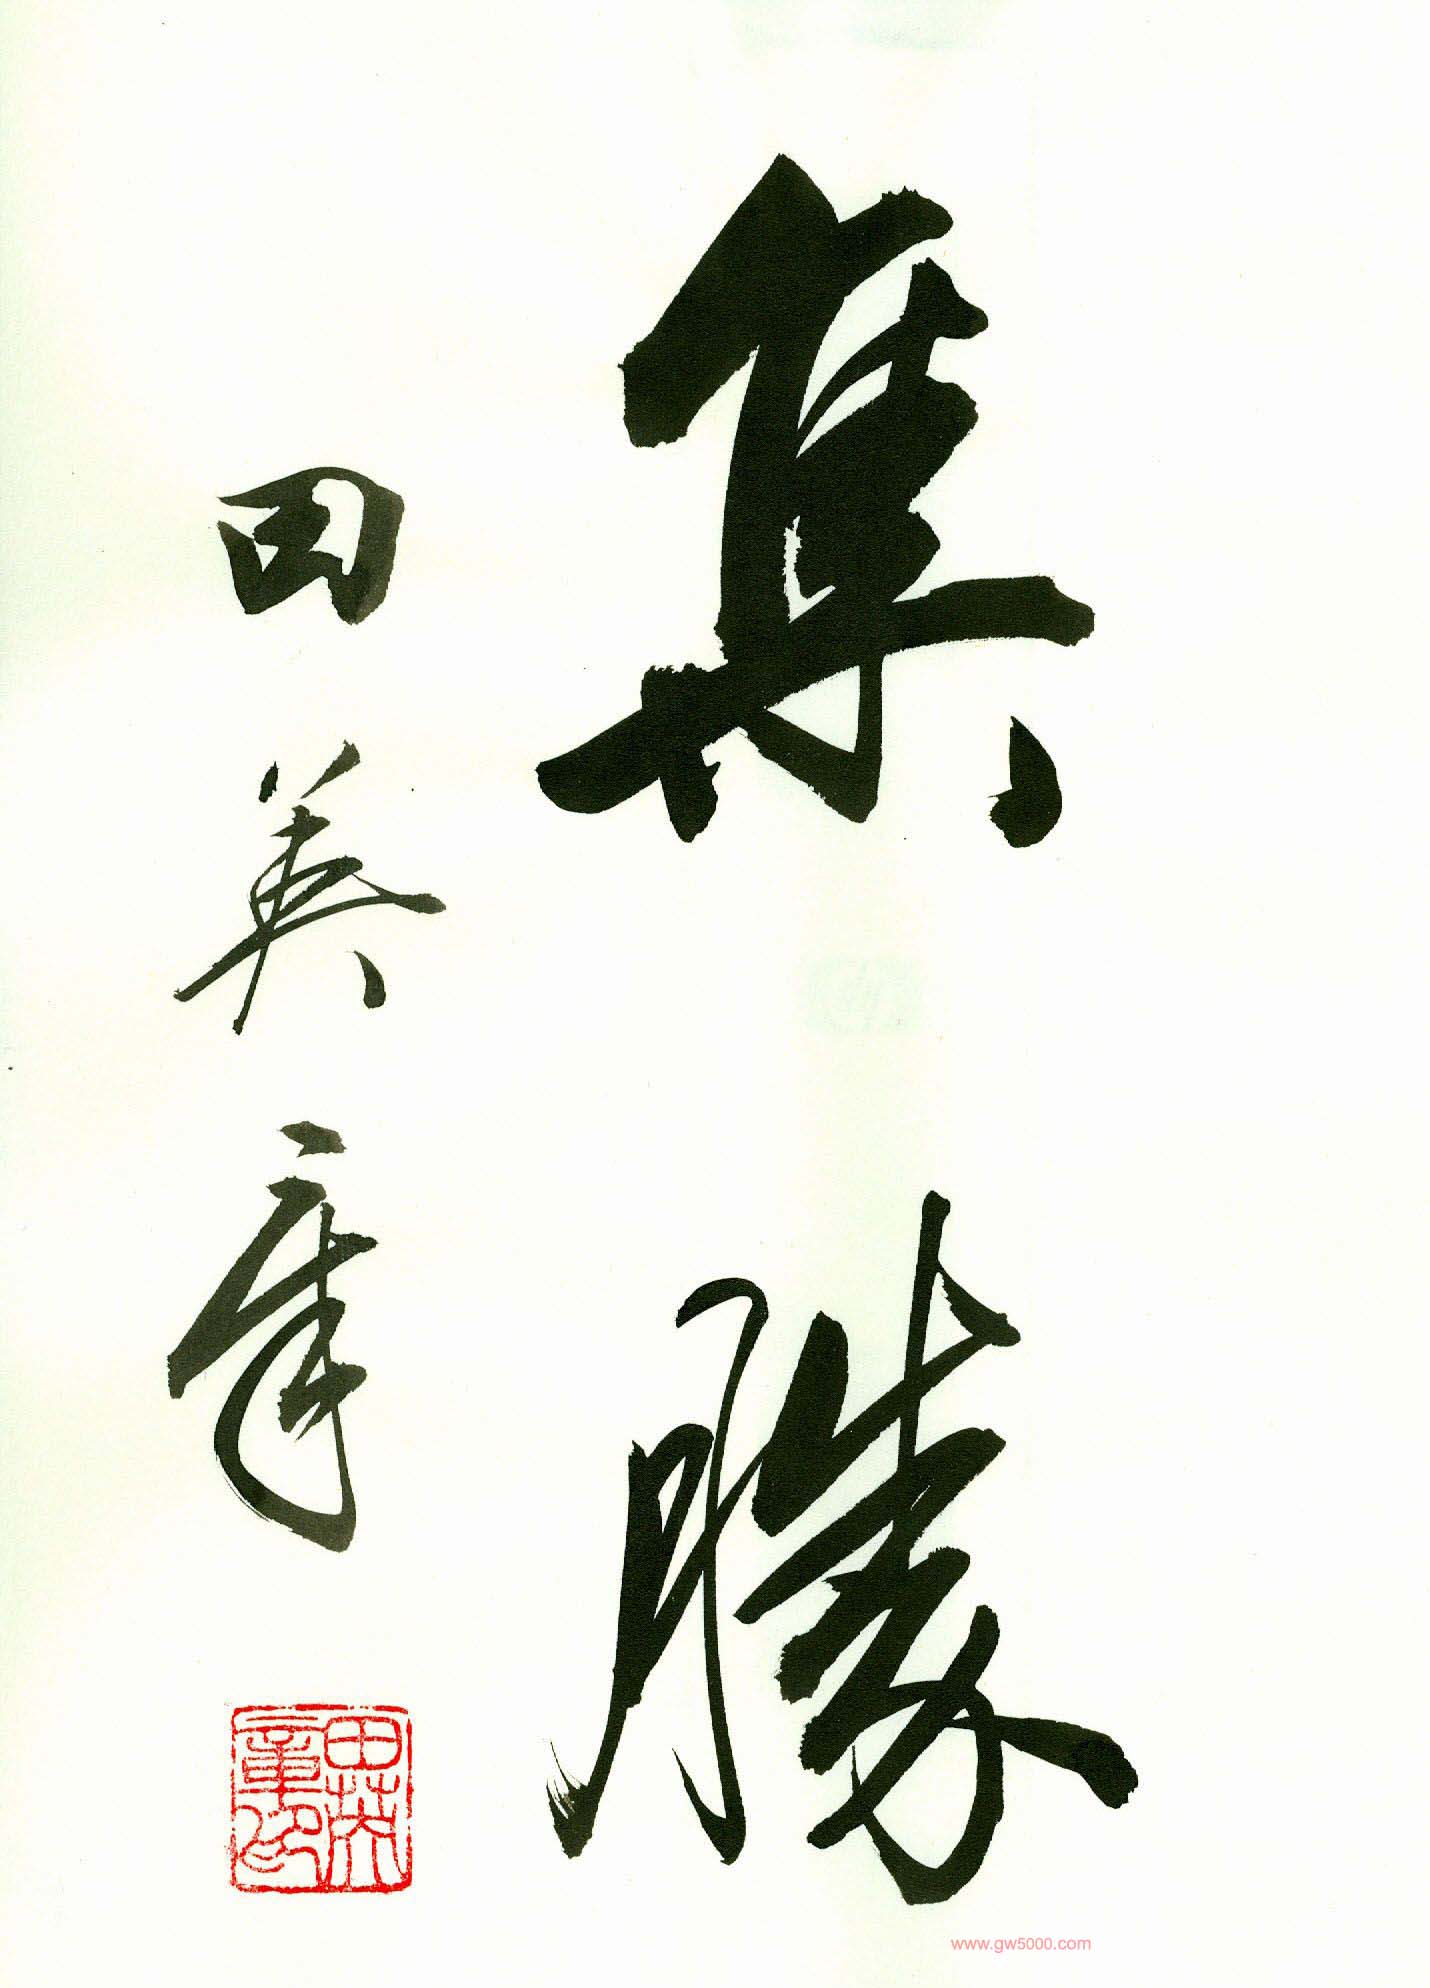 集勝
田英章
田英章印
www.gw5000.com